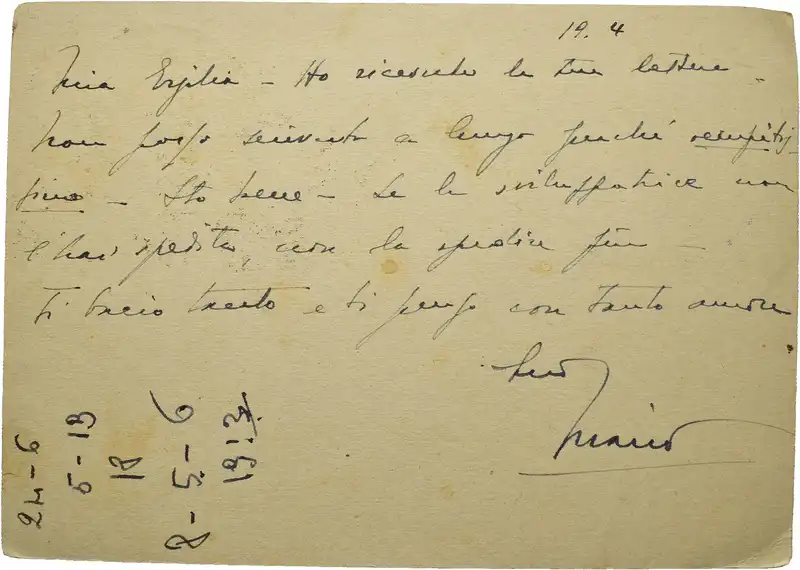 19. 4
Mia Ersilia - Ho ricevuto la tua lettera.
Non posso scriverti a lungo perché occupatis-
simo - Sto bene - Se la sviluppatrice non
l'hai spedita, non la spedire più -
Ti bacio tanto e ti penso con tanto amore
tuo
Mario
24-6
5-19
18
8-5-6